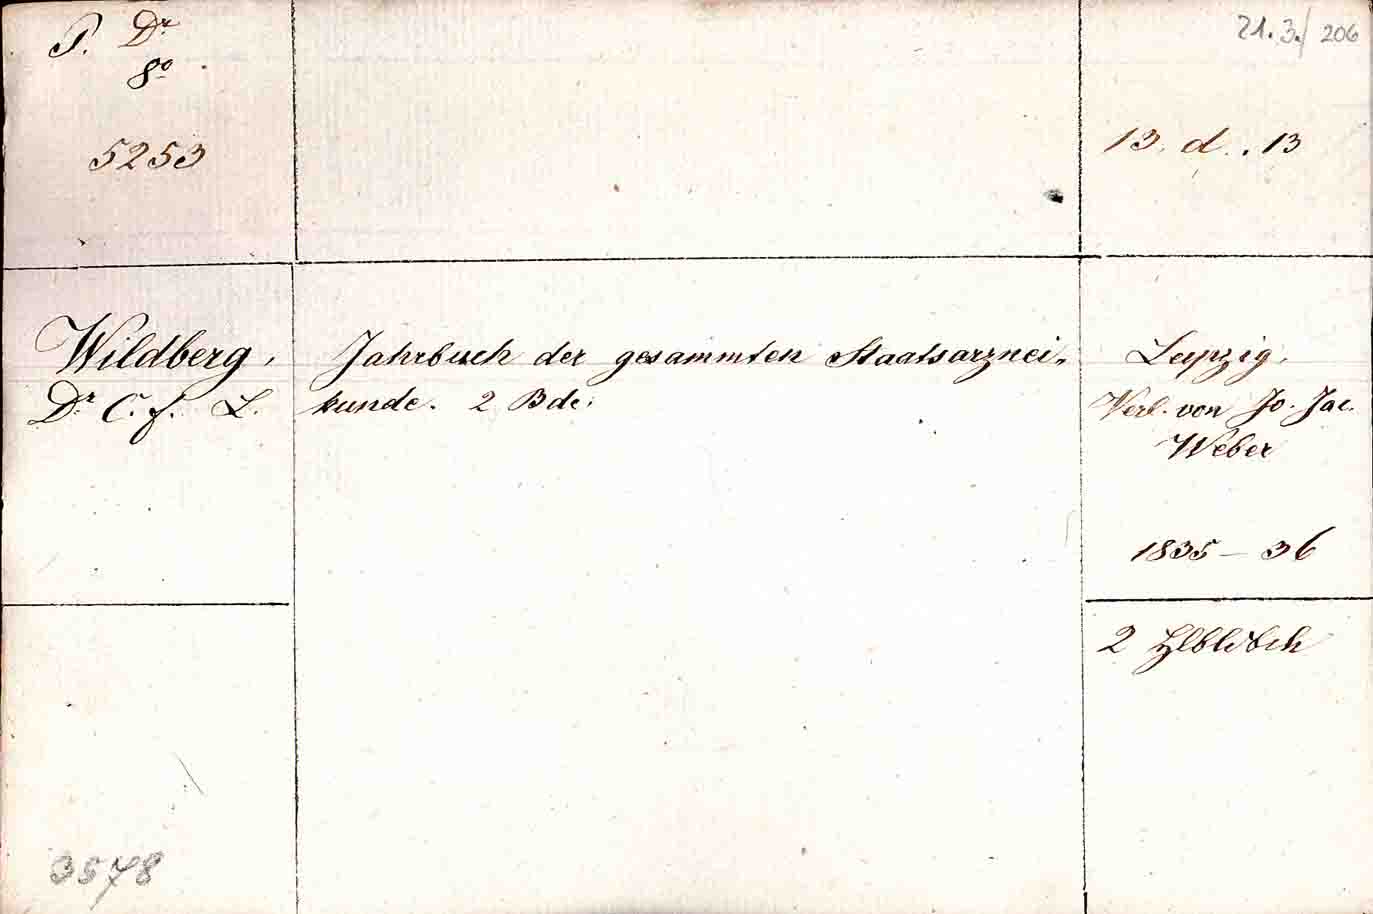 P. Dr
8o
5253
21.3./206
13. d. 13
Wildberg,
Dr C. f. L.
Jahrbuch der gesammten Staatsarznei-
kunde. 2 Bde.
Leipzig,
Verl. von Jo. Jac.
Weber
1835 – 36
2 Hlblдbde
3578